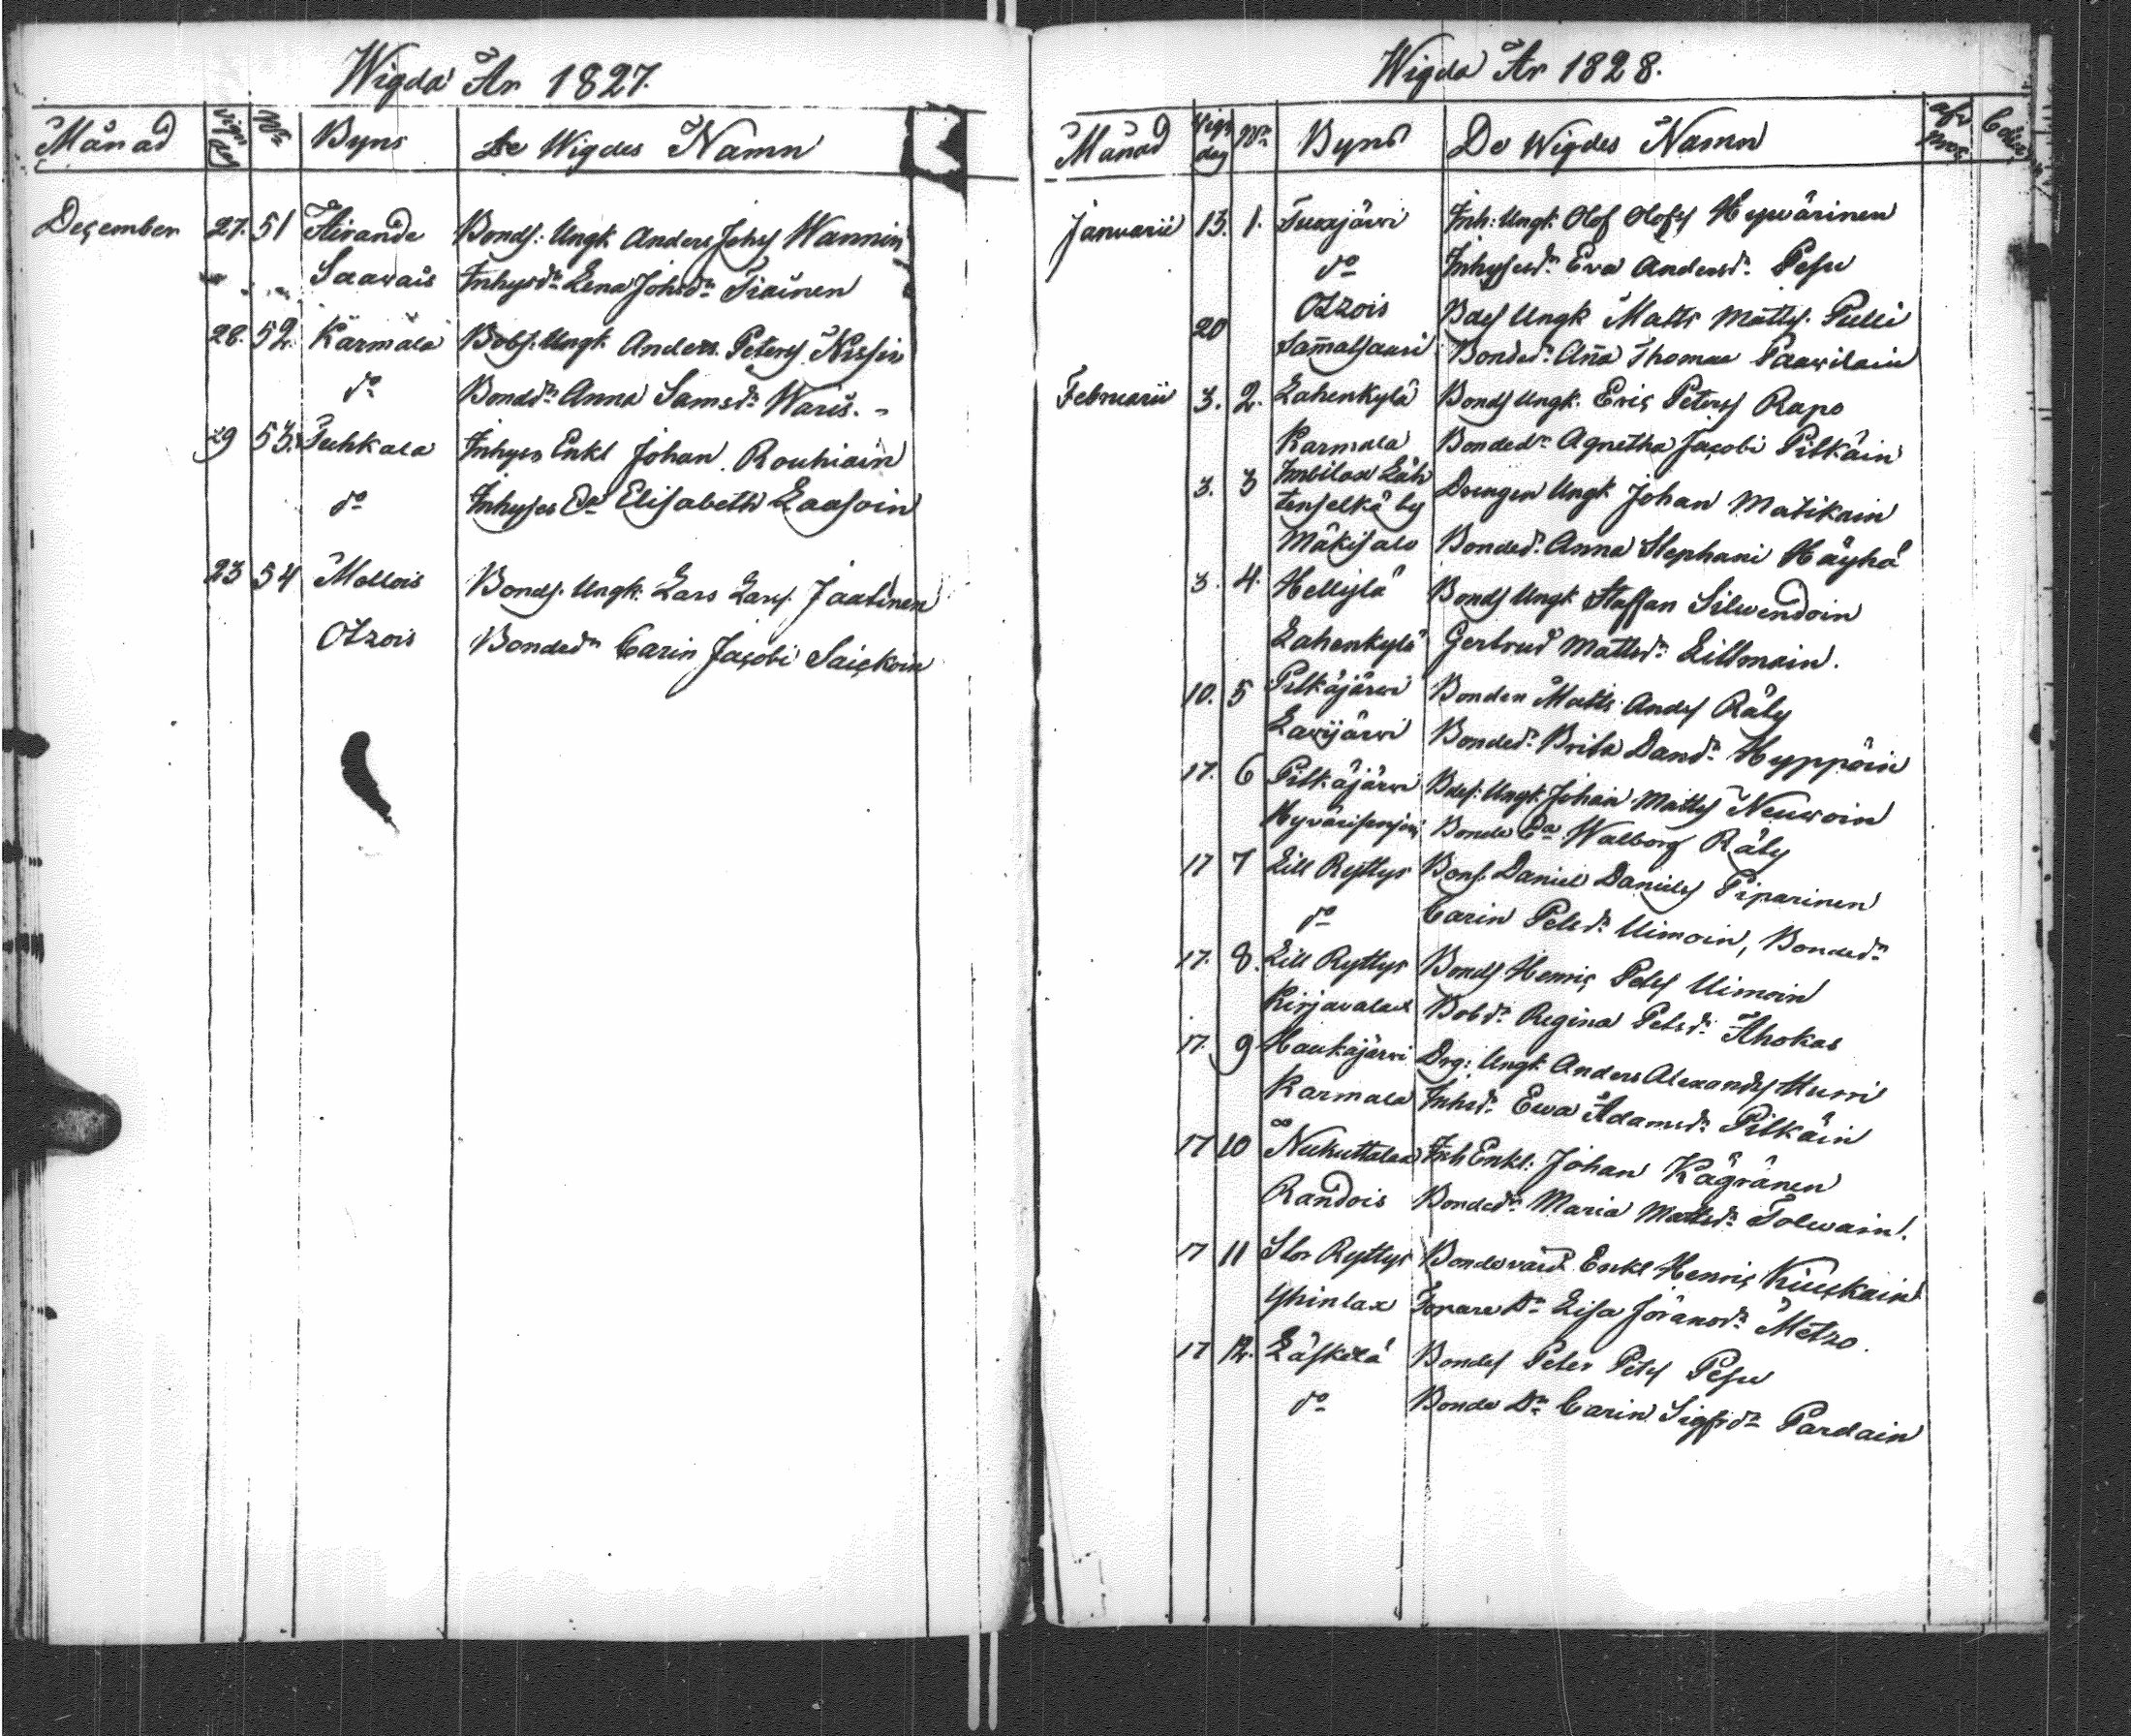 Wigda År 1827.
Månad Vigs Dag No Byns De Wigdes Namn
December 27. 51 Airande Bonds: Ungk Anders Johs Wannin
Saavais Inhysdr Lena Johsdr Tiainen
28. 52. Karmala Bobs. Ungk. Anders Peters Nissin
do Bonddr Anna Samsdr Waris. -
29 53. Puhkala Inhys Enkl Johan Rouhiain
do Inhyses Dr Elisabeth Laasoin
23 54 Mellois Bonds. Ungk. Lars Lars. Jaatinen
Otzois Bondedr Carin Jacobi Saickoin
Wigda År 1828.
Månad Vigs dag No Byns De Wigdes Namn
Januarii 13. 1. Suurjärvi Inh: Ungk. Olof Olofs Hywärinen
do Inhysesdr Eva Andersdr Pesu
20 Otzois Bdes Ungk Matts Matts. Pulli
Sammatsaari Bondedr Aña Thomae Paawilain
Februarii 3. 2. Lahenkylä Bonds Ungk. Eric Peters Rapo
Karmala Bondedr Agnetha Jacobi Pitkäin
3. 3 Imbilax Läh
tenselkä by Drengen Ungk Johan Matikain
Mäkisalo Bondedr Anna Stephani Häyhä
3. 4. Hellylä Bonds Ungk Staffan Silwendoin
Lahenkylä Gertrud Mattsdr Littmain.
10. 5 Pitkäjärwi Bonden Matts Anders Räty
Lavijärvi Bondedr Brita Dansdr Hyppöin
17. 6 Pitkäjärwi Bdes. Ungk Johan Matts Neuwoin
Bonde Dr Walborg Räty
17 7 Lill Ryttys Bons. Daniel Daniels Piparinen
do Carin Petsdr Uimoin, Bondedr
17. 8. Lill Ryttys Bonds Henric Pets Uimoin
Kirjavalax Bobdr Regina Petsdr Ahokas
17. 9 Haukajärvi Drg: Ungk Anders Alexanders Hurri
Karmala Inhsdr Ewa Adamsdr Pitkäin
17 10 Nukuttalax Inh Enkl: Johan Kägränen
Randois Bondedr Maria Mattsdr Tolwain.
17 11 Stor Ryttys Bondevärd Enkl Henric Kiuckain
Yhinlax Torpare Dr Lisa Jöransdr Metzo.
17 12. Läskelä Bondes Peter Pets Pesu
do Bonde Dr Carin Sigfrdr Pardain